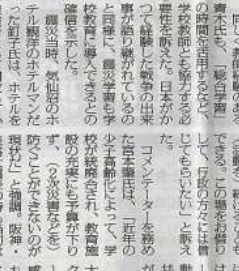 同じく教師経験のある
青木氏も、「総合学習」
の時間を活用するなど、
学校教師とも協力する必
要性を訴えた。日本がか
つて経験した戦争の出来
事が語り継がれているの
と同様に、震災学習も学
校教育に導入できるとの
確信を示した。
震災当時、気仙沼のホ
テル観洋のホテルマンだ
った釘子氏は、ホテルを
できる。この場をお借り
して、行政の方々には信
じてもらいたい」と訴え
た。
コメンテーターを務め
た宮本肇氏は、「近年の
少子高齢化によって、学
校が統廃合され、教育施
設の充実にも予算が下り
ず、(2次災害などを)
防ぐことができないのが
現状だ」と強調。阪神・